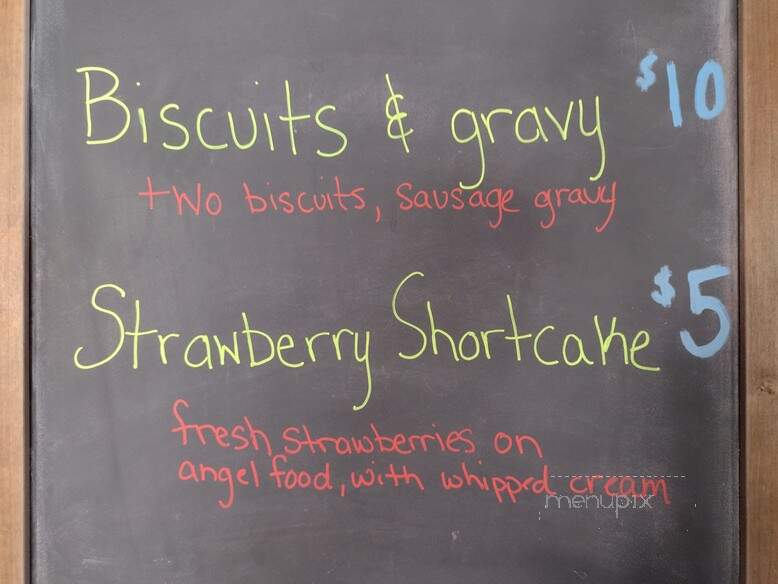 Biscuits & gravy $10
two biscuits, sausage gravy
Strawberry Shortcake $5
fresh strawberries on
angel food, with whipped cream
menupix